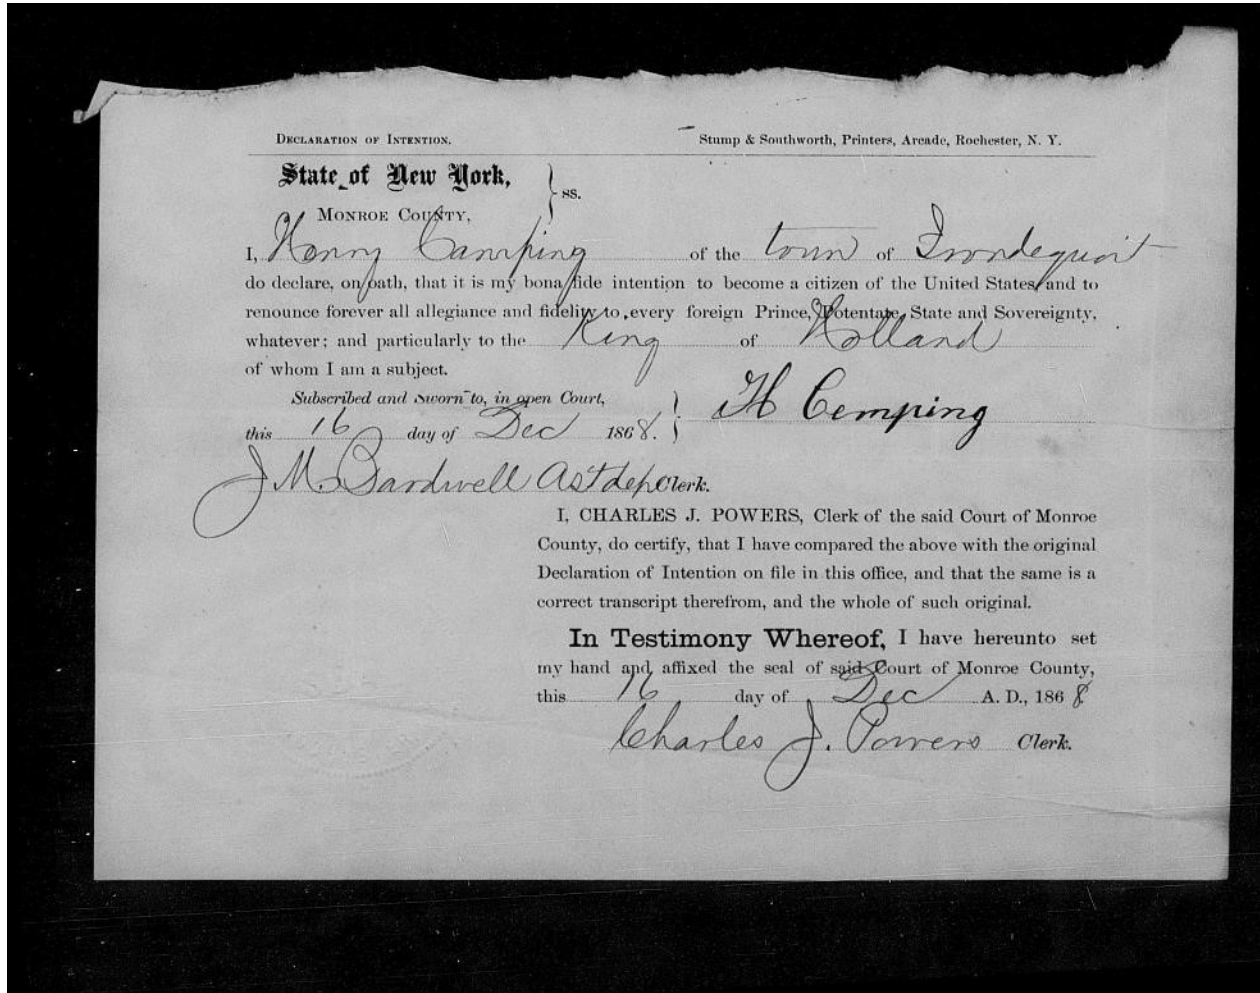 DECLARATION OF INTENTION. Stump & Southworth, Printers, Arcade, Rochester, N. Y.
State of New York,
MONROE COUNTY, } ss.
I, Henry Camping of the town of Irondequoit
do declare, on oath, that it is my bona fide intention to become a citizen of the United States, and to
renounce forever all allegiance and fidelity to every foreign Prince, Potentate, State and Sovereignty,
whatever; and particularly to the King of Holland
of whom I am a subject.
Subscribed and sworn to, in open Court,
this 16 day of Dec 1868. } H Cemping
J M. Bardwell Ast dep Clerk.
I, CHARLES J. POWERS, Clerk of the said Court of Monroe
County, do certify, that I have compared the above with the original
Declaration of Intention on file in this office, and that the same is a
correct transcript therefrom, and the whole of such original.
In Testimony Whereof, I have hereunto set
my hand and affixed the seal of said Court of Monroe County,
this 16 day of Dec A. D., 1868
Charles J. Powers Clerk.